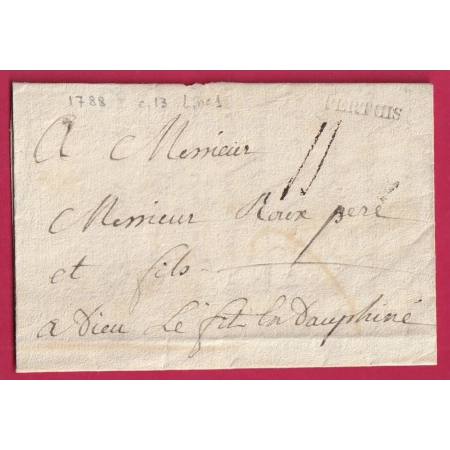 1788 c, 13 L, no 1
PERTUIS
A Monsieur
11
Monsieur Roux pere
et fils
a Dieu Le fit En Dauphiné